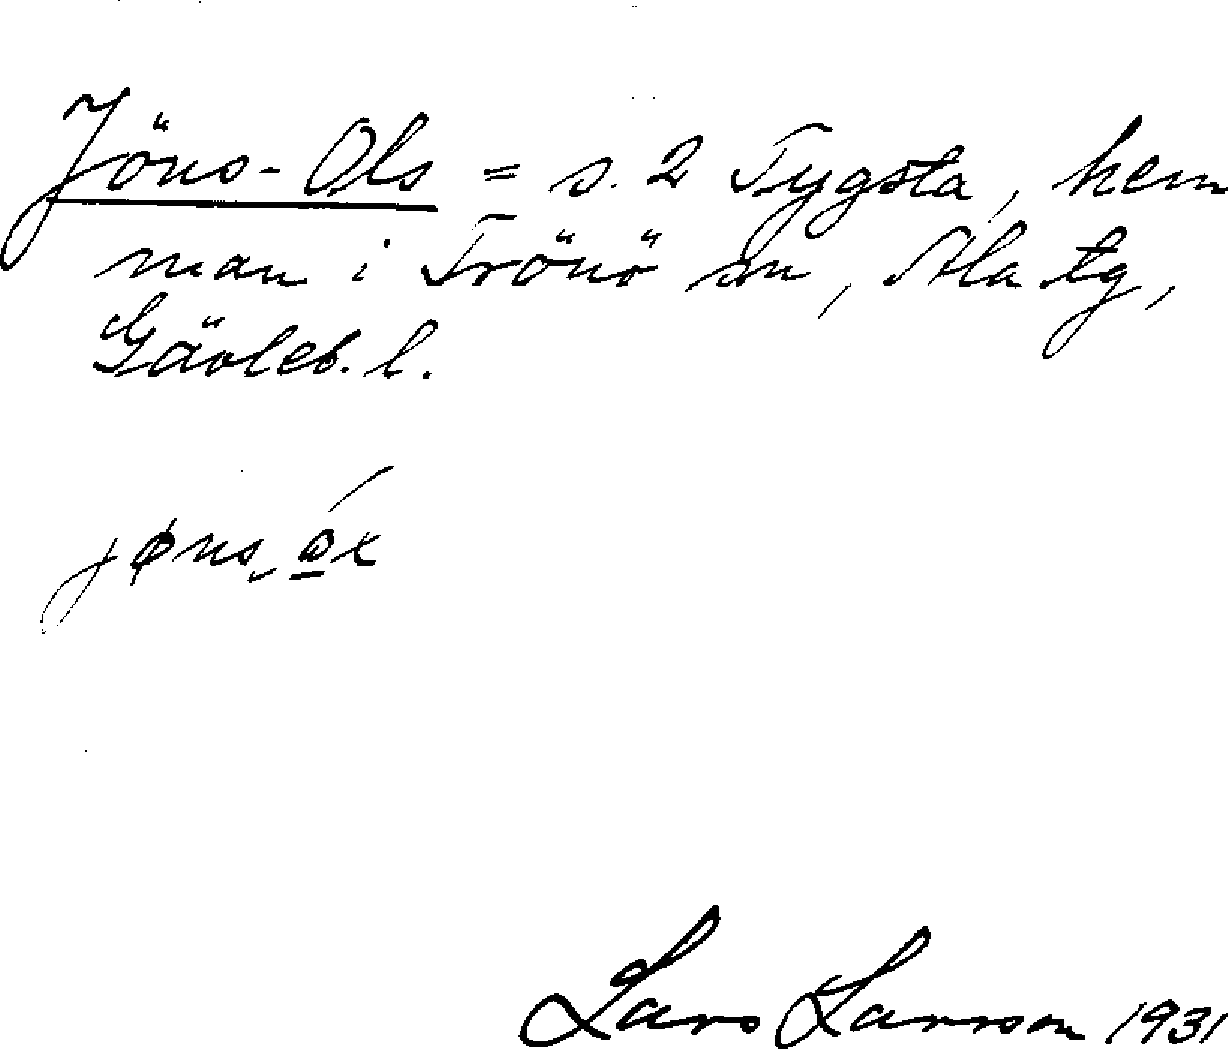 Jöns-Ols = s. 2 Tygsta, hem
man i Trönö sn, Ala tg,
Gävleb. l.
Lars Larsson 1931